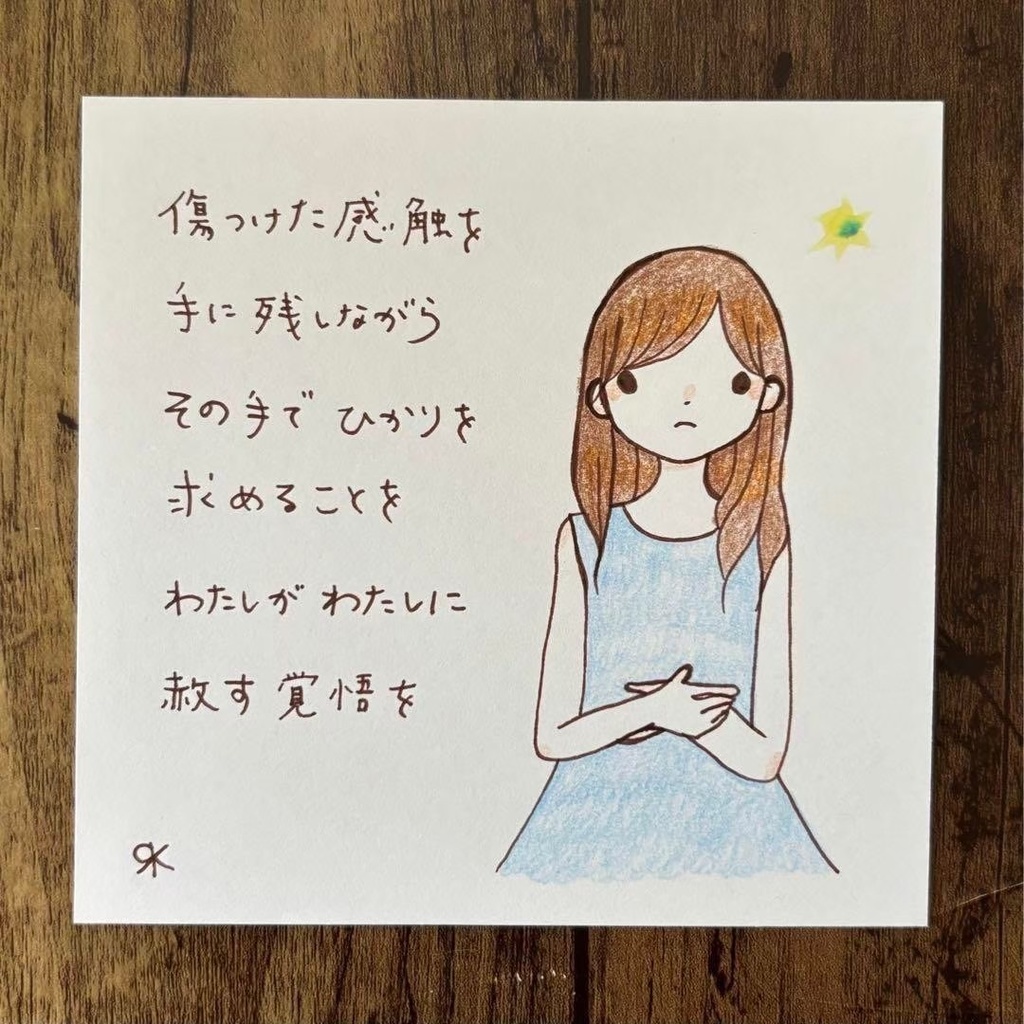 傷つけた感触を
手に残しながら
その手でひかりを
求めることを
わたしがわたしに
赦す覚悟を